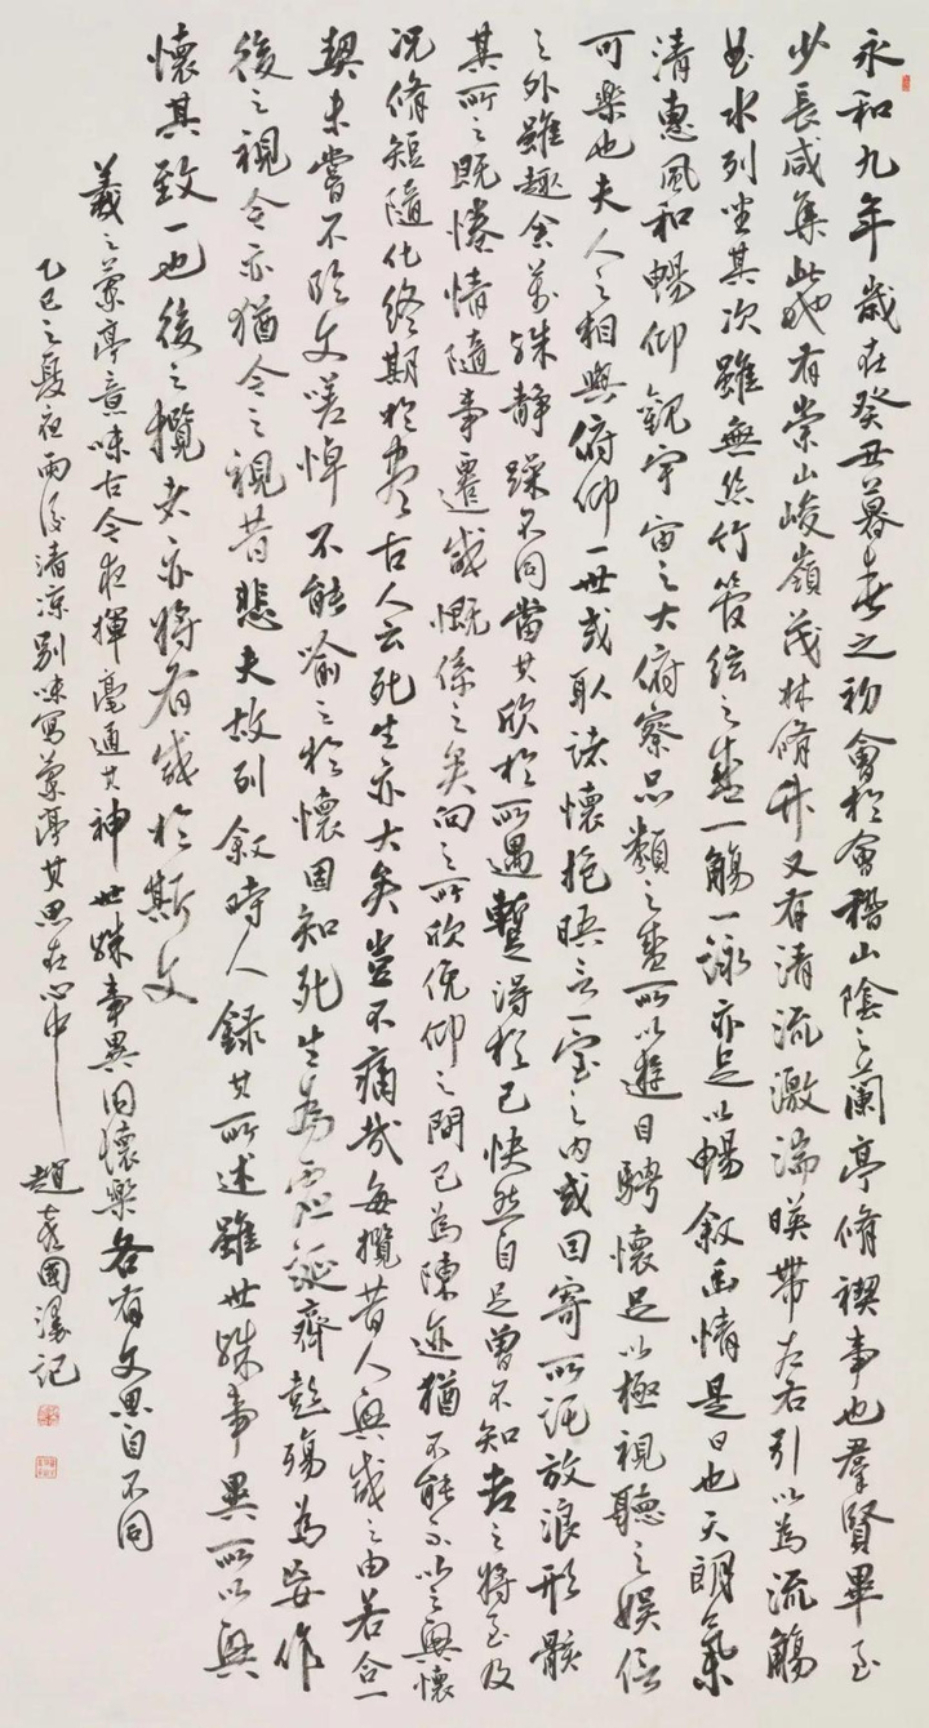 永和九年歲在癸丑暮春之初會於會稽山陰之蘭亭脩禊事也羣賢畢至
少長咸集此地有崇山峻嶺茂林脩竹又有清流激湍暎帶左右引以為流觴
曲水列坐其次雖無絲竹管絃之盛一觴一詠亦足以暢叙幽情是日也天朗氣
清惠風和暢仰觀宇宙之大俯察品類之盛所以遊目騁懷足以極視聽之娛信
可樂也夫人之相與俯仰一世或取諸懷抱晤言一室之內或因寄所託放浪形骸
之外雖趣舍萬殊靜躁不同當其欣於所遇暫得於己快然自足曾不知老之將至及
其所之既惓情隨事遷感慨係之矣向之所欣俛仰之間已為陳迹猶不能不以之興懷
況脩短隨化終期於盡古人云死生亦大矣豈不痛哉每攬昔人興感之由若合一
契未嘗不臨文嗟悼不能喻之於懷固知死生為虛誕齊彭殤為妄作
後之視今亦猶今之視昔悲夫故列叙時人錄其所述雖世殊事異所以興
懷其致一也後之攬者亦將有感於斯文
羲之蘭亭意味古今夜揮毫通其神世殊事異同懷樂各有文思自不同
乙巳之夏夜雨後清涼別味寫蘭亭其思在心中趙國濤記